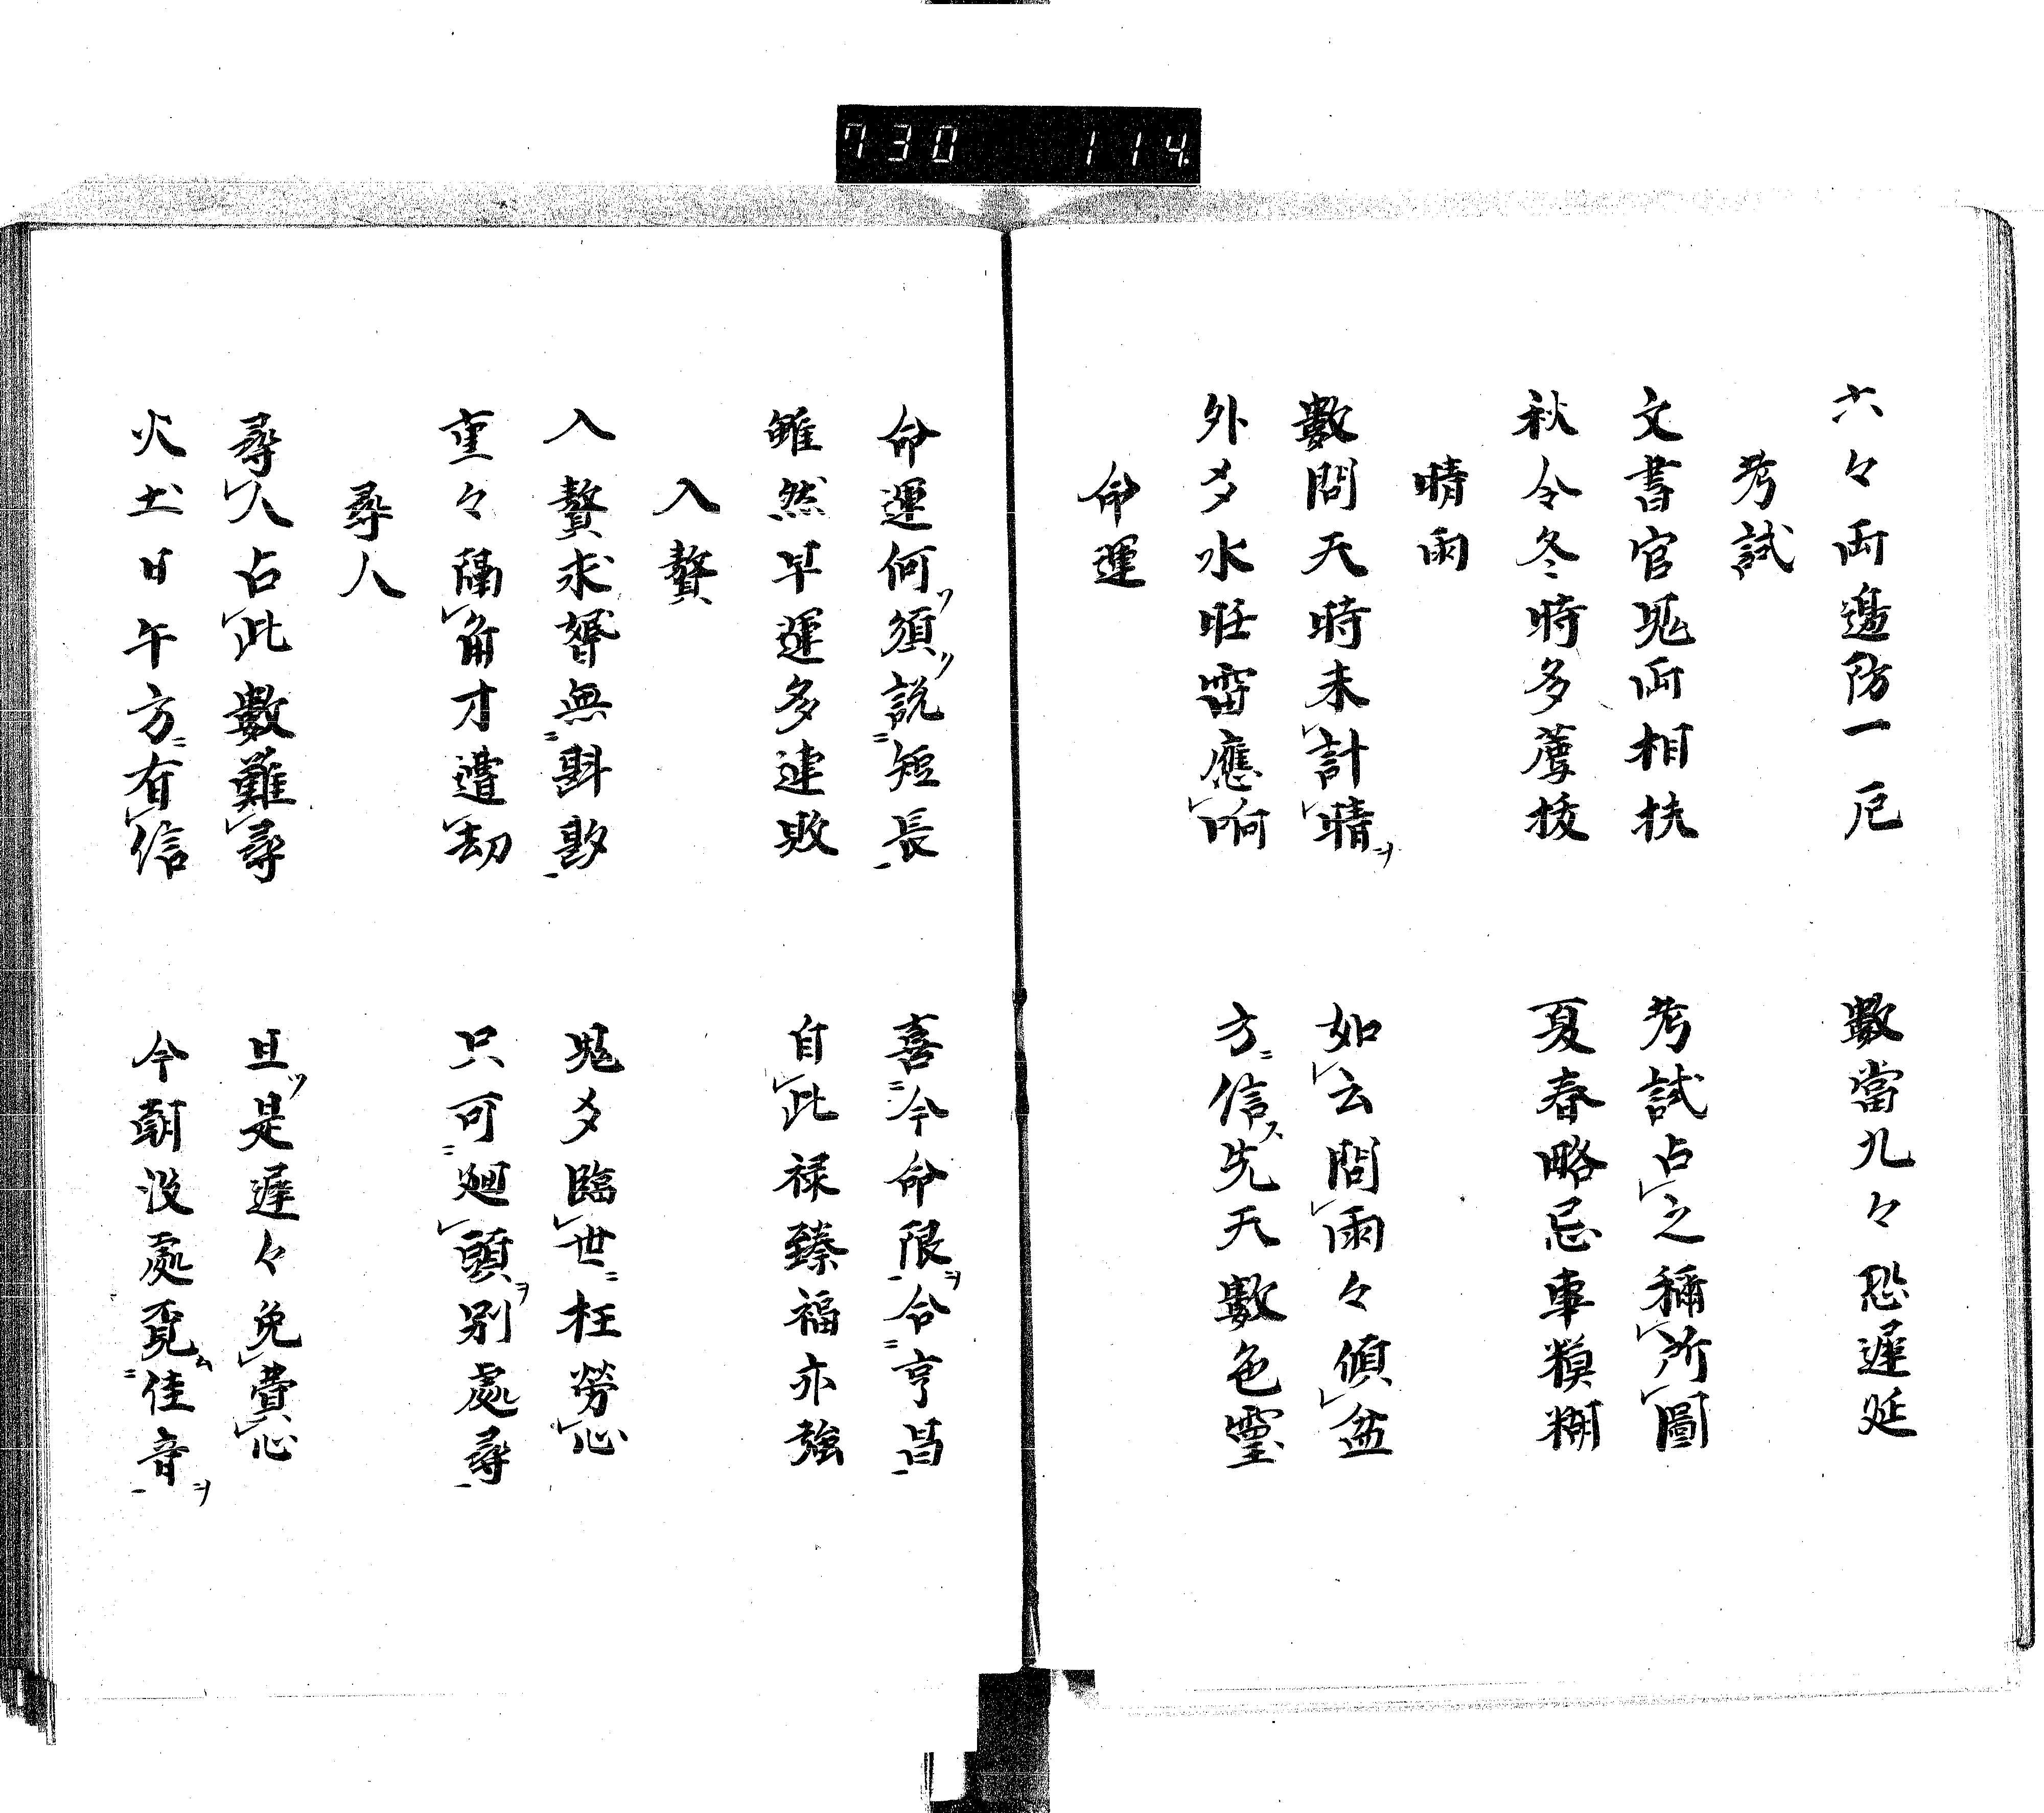 730 114
六々両邊防一厄 數當九々恐遲延
考試
文書官鬼両相扶 考試占之稱所圖
秋令冬時多薦拔 夏春略忌車糢糊
晴雨
數問天時未計晴ヲ 如云問雨々傾盆
外爻水旺雷應响 方信ス先天數色靈
命運
命運何ソ須ソ説短長 喜今命限ヲ合亨昌
雖然早運多連敗 自此禄臻福亦強
入贅
入贅求婚無斟酌 鬼爻臨世枉勞心
重々隔角才遭劫 只可廻頭ヲ別處尋
尋人
尋人占此數難尋 且ツ是遲々免費心
火土日午方有信 今朝没處覓ム佳音ヲ